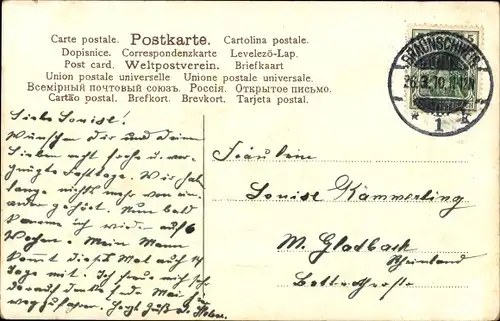 Carte postale. Postkarte. Cartolina postale.
Dopisnice. Correspondenzkarte Levelező-Lap.
Post card. Weltpostverein. Briefkaart
Union postale universelle Unione postale universale.
Всемірный почтовый союзъ. Россія. Открытое письмо.
Cartão postal. Brefkort. Brevkort. Tarjeta postal.
BRAUNSCHWEIG
26.3.10.
* 1 k
5
Liebe Louise!
Wünschen Dir und Deinen
Lieben recht frohe u. ver-
gnügte Festtage. Wir haben
lange nichts mehr von ein-
ander gehört. Nun bald
komme ich wieder auf 6
Wochen. Mein Mann
kommt dieses Mal auch 14
Tage mit. Ich freue mich sehr
darauf denke Ende Mai
wegzufahren. Herzl. Gruß
Fräulein
Louise Kämmerling
M. Gladbach
Rheinland